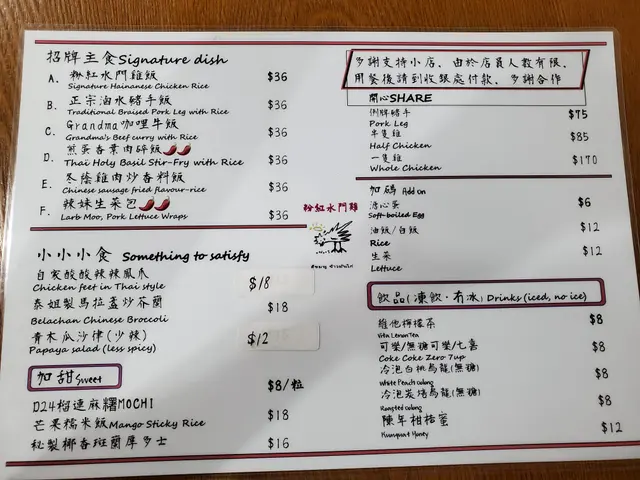 招牌主食Signature dish
A. 粉紅水門雞飯 $36
Signature Hainanese Chicken Rice
B. 正宗滷水豬手飯 $36
Traditional Braised Pork Leg with Rice
C. Grandma咖喱牛飯 $36
Grandma's Beef curry with Rice
D. 煎蛋香葉肉碎飯 $36
Thai Holy Basil Stir-Fry with Rice
E. 冬陰雞肉炒香料飯 $36
Chinese sausage fried flavour-rice
F. 辣妹生菜包 $36
Larb Moo, Pork Lettuce Wraps
小小小食 Something to satisfy
自家酸酸辣辣鳳爪 $18
Chicken feet in Thai style
泰姐製馬拉盞炒芥蘭 $18
Belachan Chinese Broccoli
青木瓜沙律(少辣) $12
Papaya salad (less spicy)
加甜Sweet
D24榴連麻糬MOCHI $8/粒
芒果糯米飯Mango Sticky Rice $18
秘製椰香斑蘭厚多士 $16
粉紅水門雞
多謝支持小店，由於店員人數有限，
用餐後請到收銀處付款，多謝合作
開心SHARE
例牌豬手 $75
Pork Leg
半隻雞 $85
Half Chicken
一隻雞 $170
Whole Chicken
加碼 Add on
溏心蛋 $6
Soft-boiled Egg
油飯/白飯 $12
Rice
生菜 $12
Lettuce
飲品(凍飲，有冰) Drinks (iced, no ice)
維他檸檬茶 $8
Vita Lemon Tea
可樂/無糖可樂/七喜 $8
Coke Coke Zero 7up
冷泡白桃烏龍(無糖) $8
White Peach oolong
冷泡炭焙烏龍(無糖) $8
Roasted oolong
陳年柑桔蜜 $12
Kumquat Honey